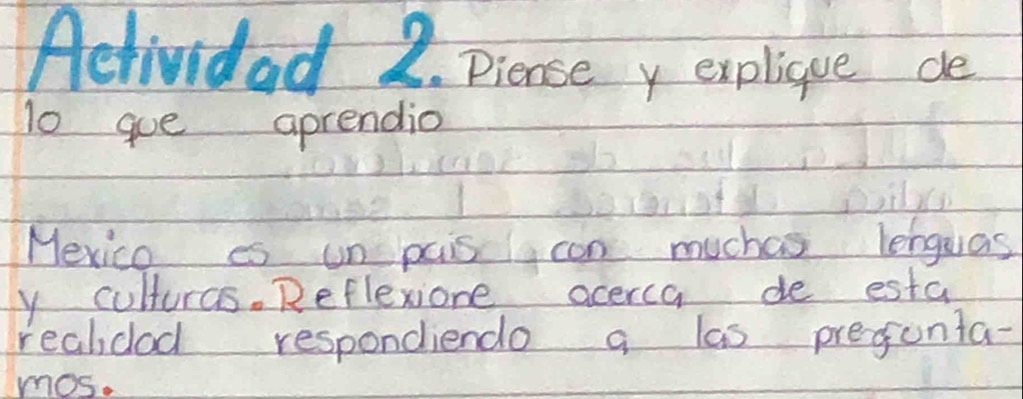 Actividad 2. Piense y explique de
lo que aprendio
Mexico es un pais con muchas lenguas
y culturas. Reflexione acerca de esta
realidad respondiendo a las pregunta-
mos.